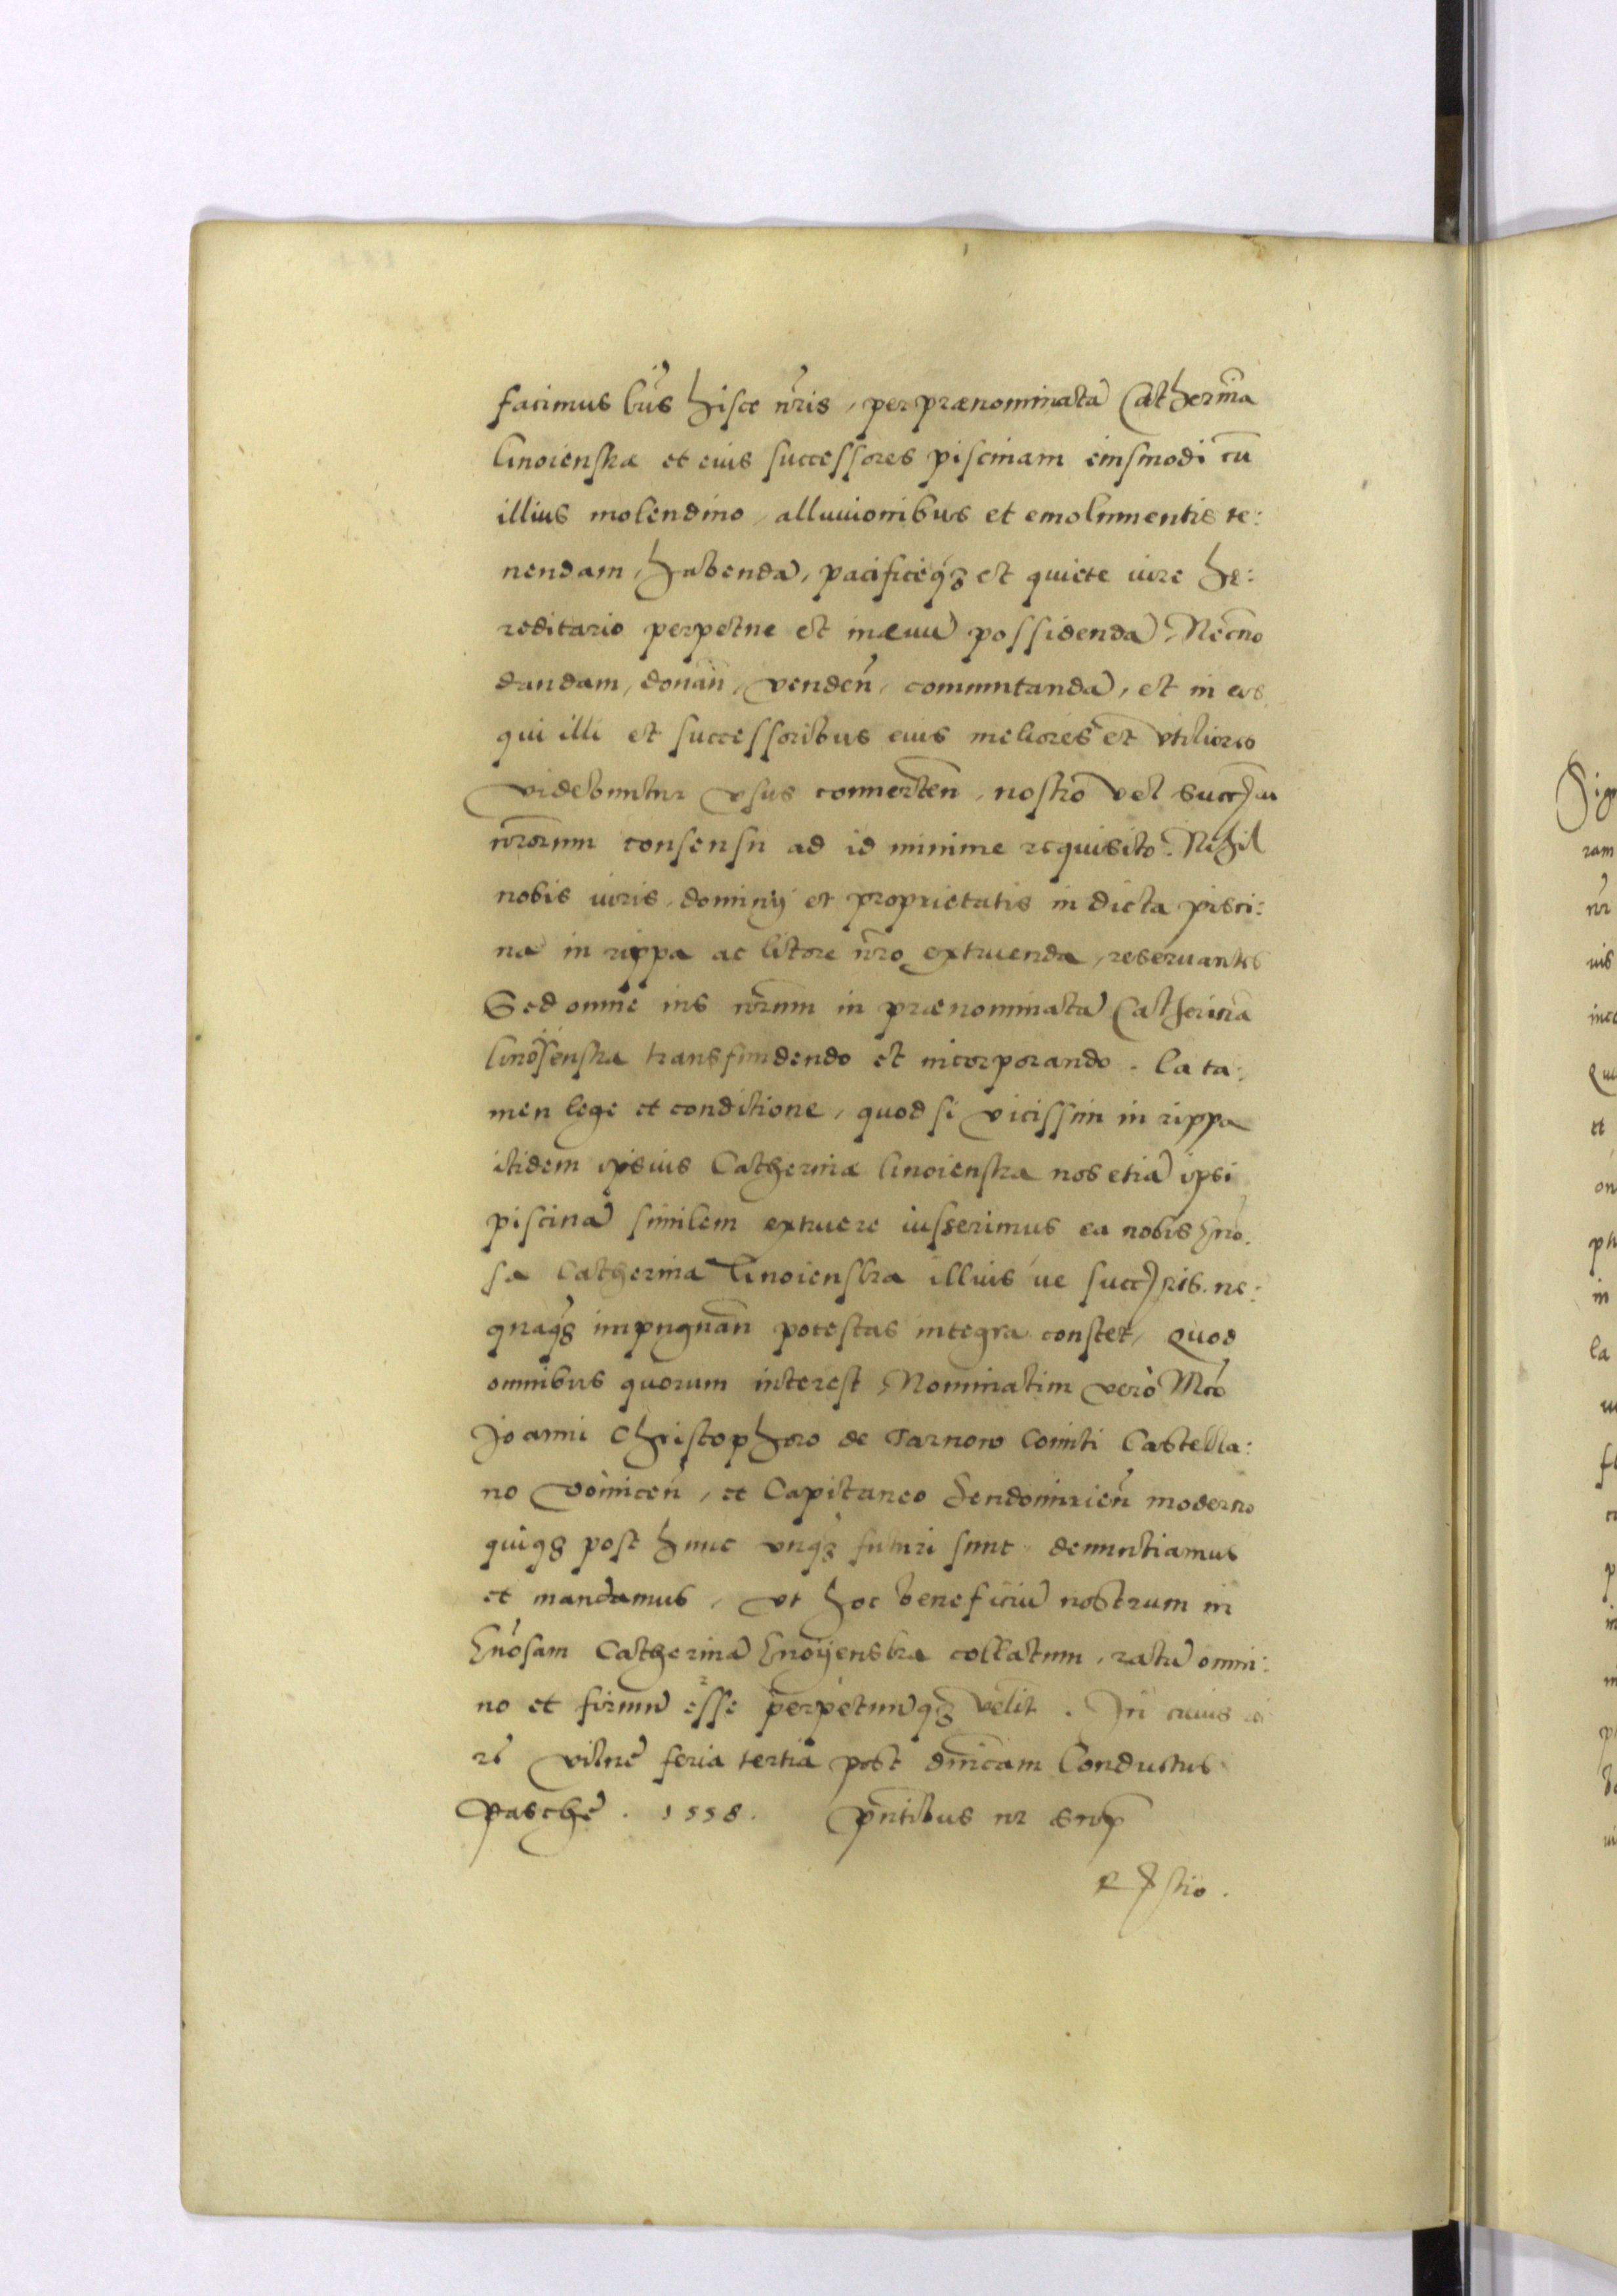 facimus lr̃is hisce nr̃is, per prænominatã Catherinã
Gnoienska et eius successores piscinam eiusmodi cũ
illius molendino, alluuionibus et emolumentis te:
nendam, habendã, pacificeq3 et quiete iure he:
reditario perpetue et in æuũ possidendã. Necno
dandam, donañ, vendeñ, commutandã, et in eos
qui illi et successoribus eius meliores et vtiliores
videbuntur vsus conuerteñ, nostro vel succ
nr̃orum consensu ad id minime requisito. Nihil
nobis iuris, dominij et proprietatis in dicta pisci:
na in rippa ac litore nr̃o extruenda, reseruantes
Sed omne ius nr̃um in prænominatã Catherinã
Gnoienska transfundendo et incorporando. Ea ta:
men lege et conditione, quod si vicissim in rippa
itidem ipsius Catherinæ Gnoienska nos etiã ipsi
piscinã similem extruere iusserimus ea nobis Gno:
sa Catherina Gnoienska illius ue succ ne:
quaq3 impugnañ potestas integra constet, Quod
omnibus quorum interest, Nominatim verò Mco
Joanni Christophoro de Tarnow Comiti Castella:
no voiniceñ, et Capitaneo Sendomirieñ moderno
quiq3 post hunc vnq3 futuri sunt denuntiamus
et mandamus, vt hoc beneficiũ nostrum in
Gnosam Catherinã Gnoyenska collatum, ratũ omni:
no et firmũ esse perpetuũq3 velit. In cuius rei
vilnę feria tertia post dnicam Conductus
Paschę. 1558. pñtibus vt supr̃
R